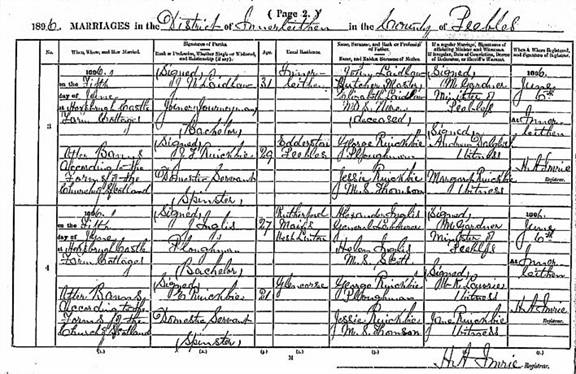 (Page 2.)
1896. MARRIAGES in the District of Innerleithen in the County of Peebles
No. When, Where, and How Married. Signatures of Parties. Rank or Profession, Whether Single or Widowed, and Relationship (if any). Age. Usual Residence. Name, Surname, and Rank or Profession of Father. Name, and Maiden Surname of Mother. If a regular Marriage, Signatures of officiating Minister and Witnesses. If irregular, Date of Conviction, Decree of Declarator, or Sheriff's Warrant. When & Where Registered, and Signature of Registrar.
3
1896.
on the Fifth
day of June
at Horsburgh Castle
Farm Cottages
After Banns
According to the
Forms of the
Church of Scotland
(Signed)
Laidlaw
Joiner Journeyman
(Bachelor)
(Signed)
Ruickbie
Domestic Servant
(Spinster)
31
29
Innerleithen
Edderston
Peebles
John Laidlaw
Butcher Master
Isabella Laidlaw
M.S.
(deceased)
George Ruickbie
Ploughman
Jessie Ruickbie
M.S. Thomson
(Signed)
M. Gardner
Minister of
Peebles
(Signed)
Andrew Dalgleish
Witness
Margaret Ruickbie
Witness
1896.
June 6th
At Innerleithen
H A Imrie
Registrar.
4
1896.
on the Fifth
day of June
at Horsburgh Castle
Farm Cottages
After Banns
According to the
Forms of the
Church of Scotland
(Signed)
Inglis
Ploughman
(Bachelor)
(Signed)
Ruickbie
Domestic Servant
(Spinster)
27
21
Rutherford
Mains
West Linton
Glencorse
Alexander Inglis
General Labourer
Helen Inglis
M.S. Scott
George Ruickbie
Ploughman
Jessie Ruickbie
M.S. Thomson
(Signed)
M. Gardner
Minister of
Peebles
(Signed)
Lawrie
Witness
Jane Ruickbie
Witness
1896.
June 6th
At Innerleithen
H A Imrie
Registrar.
H A Imrie Registrar.